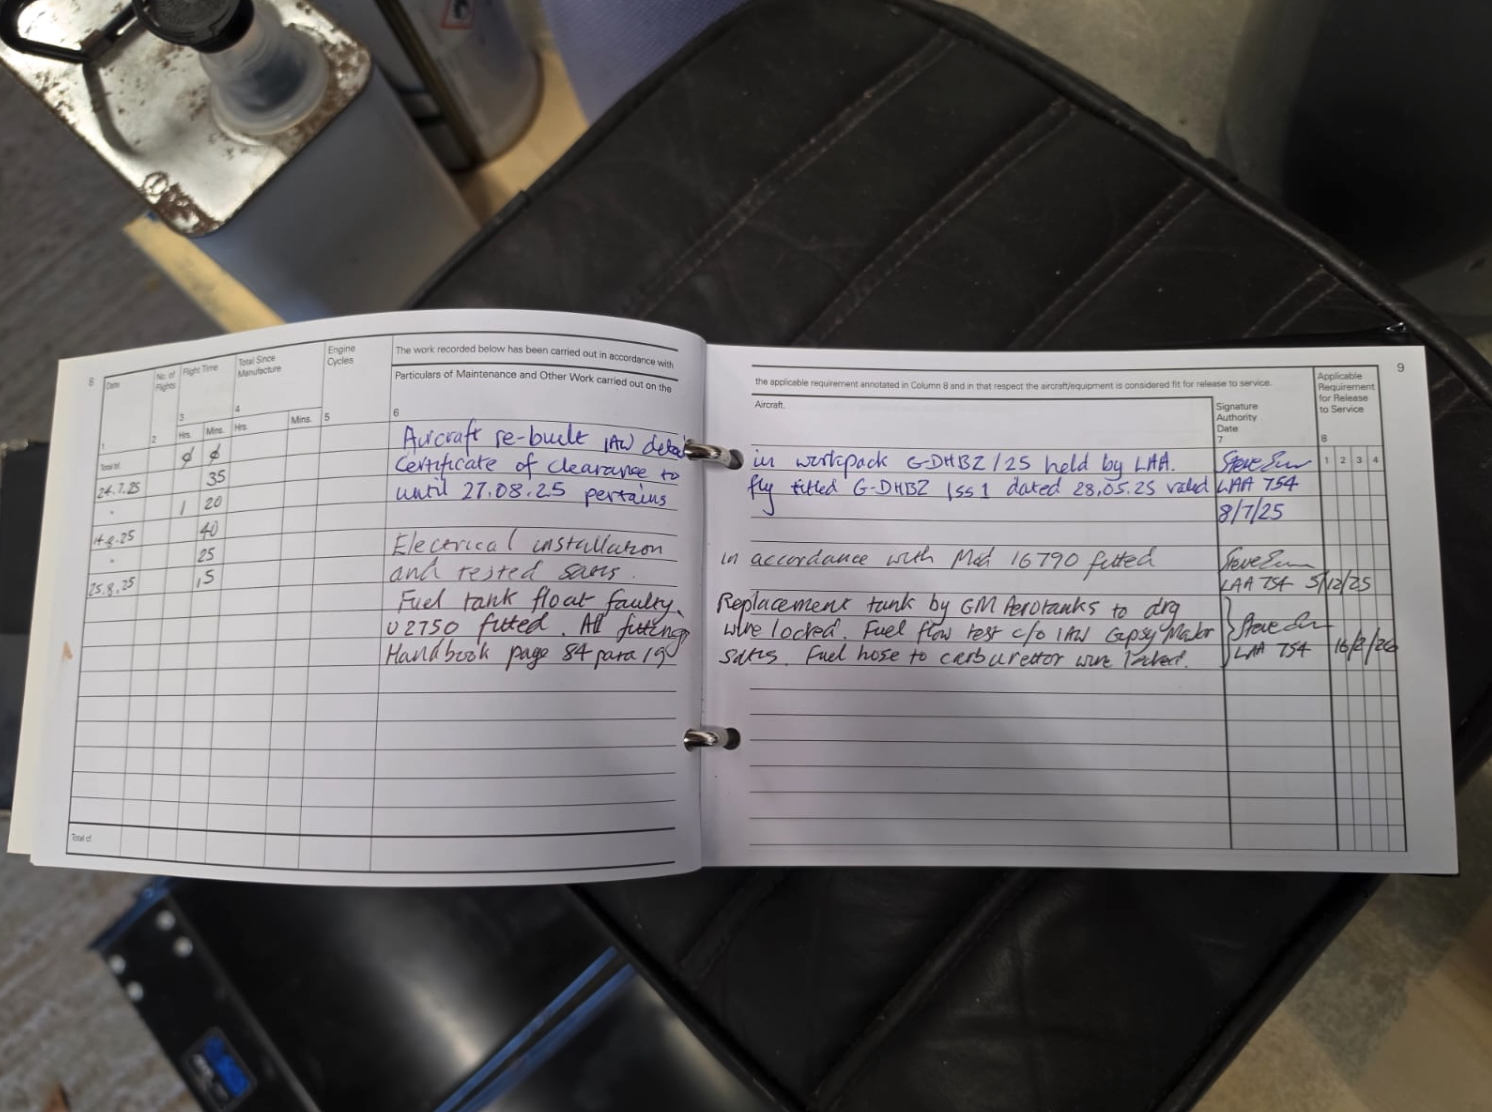 8
Date
No. of Flights
Flight Time
Total Since Manufacture
Engine Cycles
The work recorded below has been carried out in accordance with
Particulars of Maintenance and Other Work carried out on the
1
2
3
4
5
6
Hrs. Mins. Hrs. Mins.
Total bf
Aircraft re-built IAW detail
24.7.25 35
Certificate of clearance to
" 1 20
until 27.08.25 pertains
14.8.25 40
" 25
Electrical installation
25.8.25 15
and tested satis.
Fuel tank float faulty.
U2750 fitted. All fittings
Handbook page 84 para 19
Total cf
9
the applicable requirement annotated in Column 8 and in that respect the aircraft/equipment is considered fit for release to service.
Aircraft.
Signature Authority Date
7
Applicable Requirement for Release to Service
8
1 2 3 4
in workpack G-DHBZ/25 held by LAA.
fly titled G-DHBZ Iss 1 dated 28.05.25 valid LAA 754
8/7/25
in accordance with Mod 16790 fitted
LAA 754 5/12/25
Replacement tank by GM Aerotanks to drg
wire locked. Fuel flow test c/o IAW Gipsy Major
satis. Fuel hose to carburettor wire locked. LAA 754 16/2/26